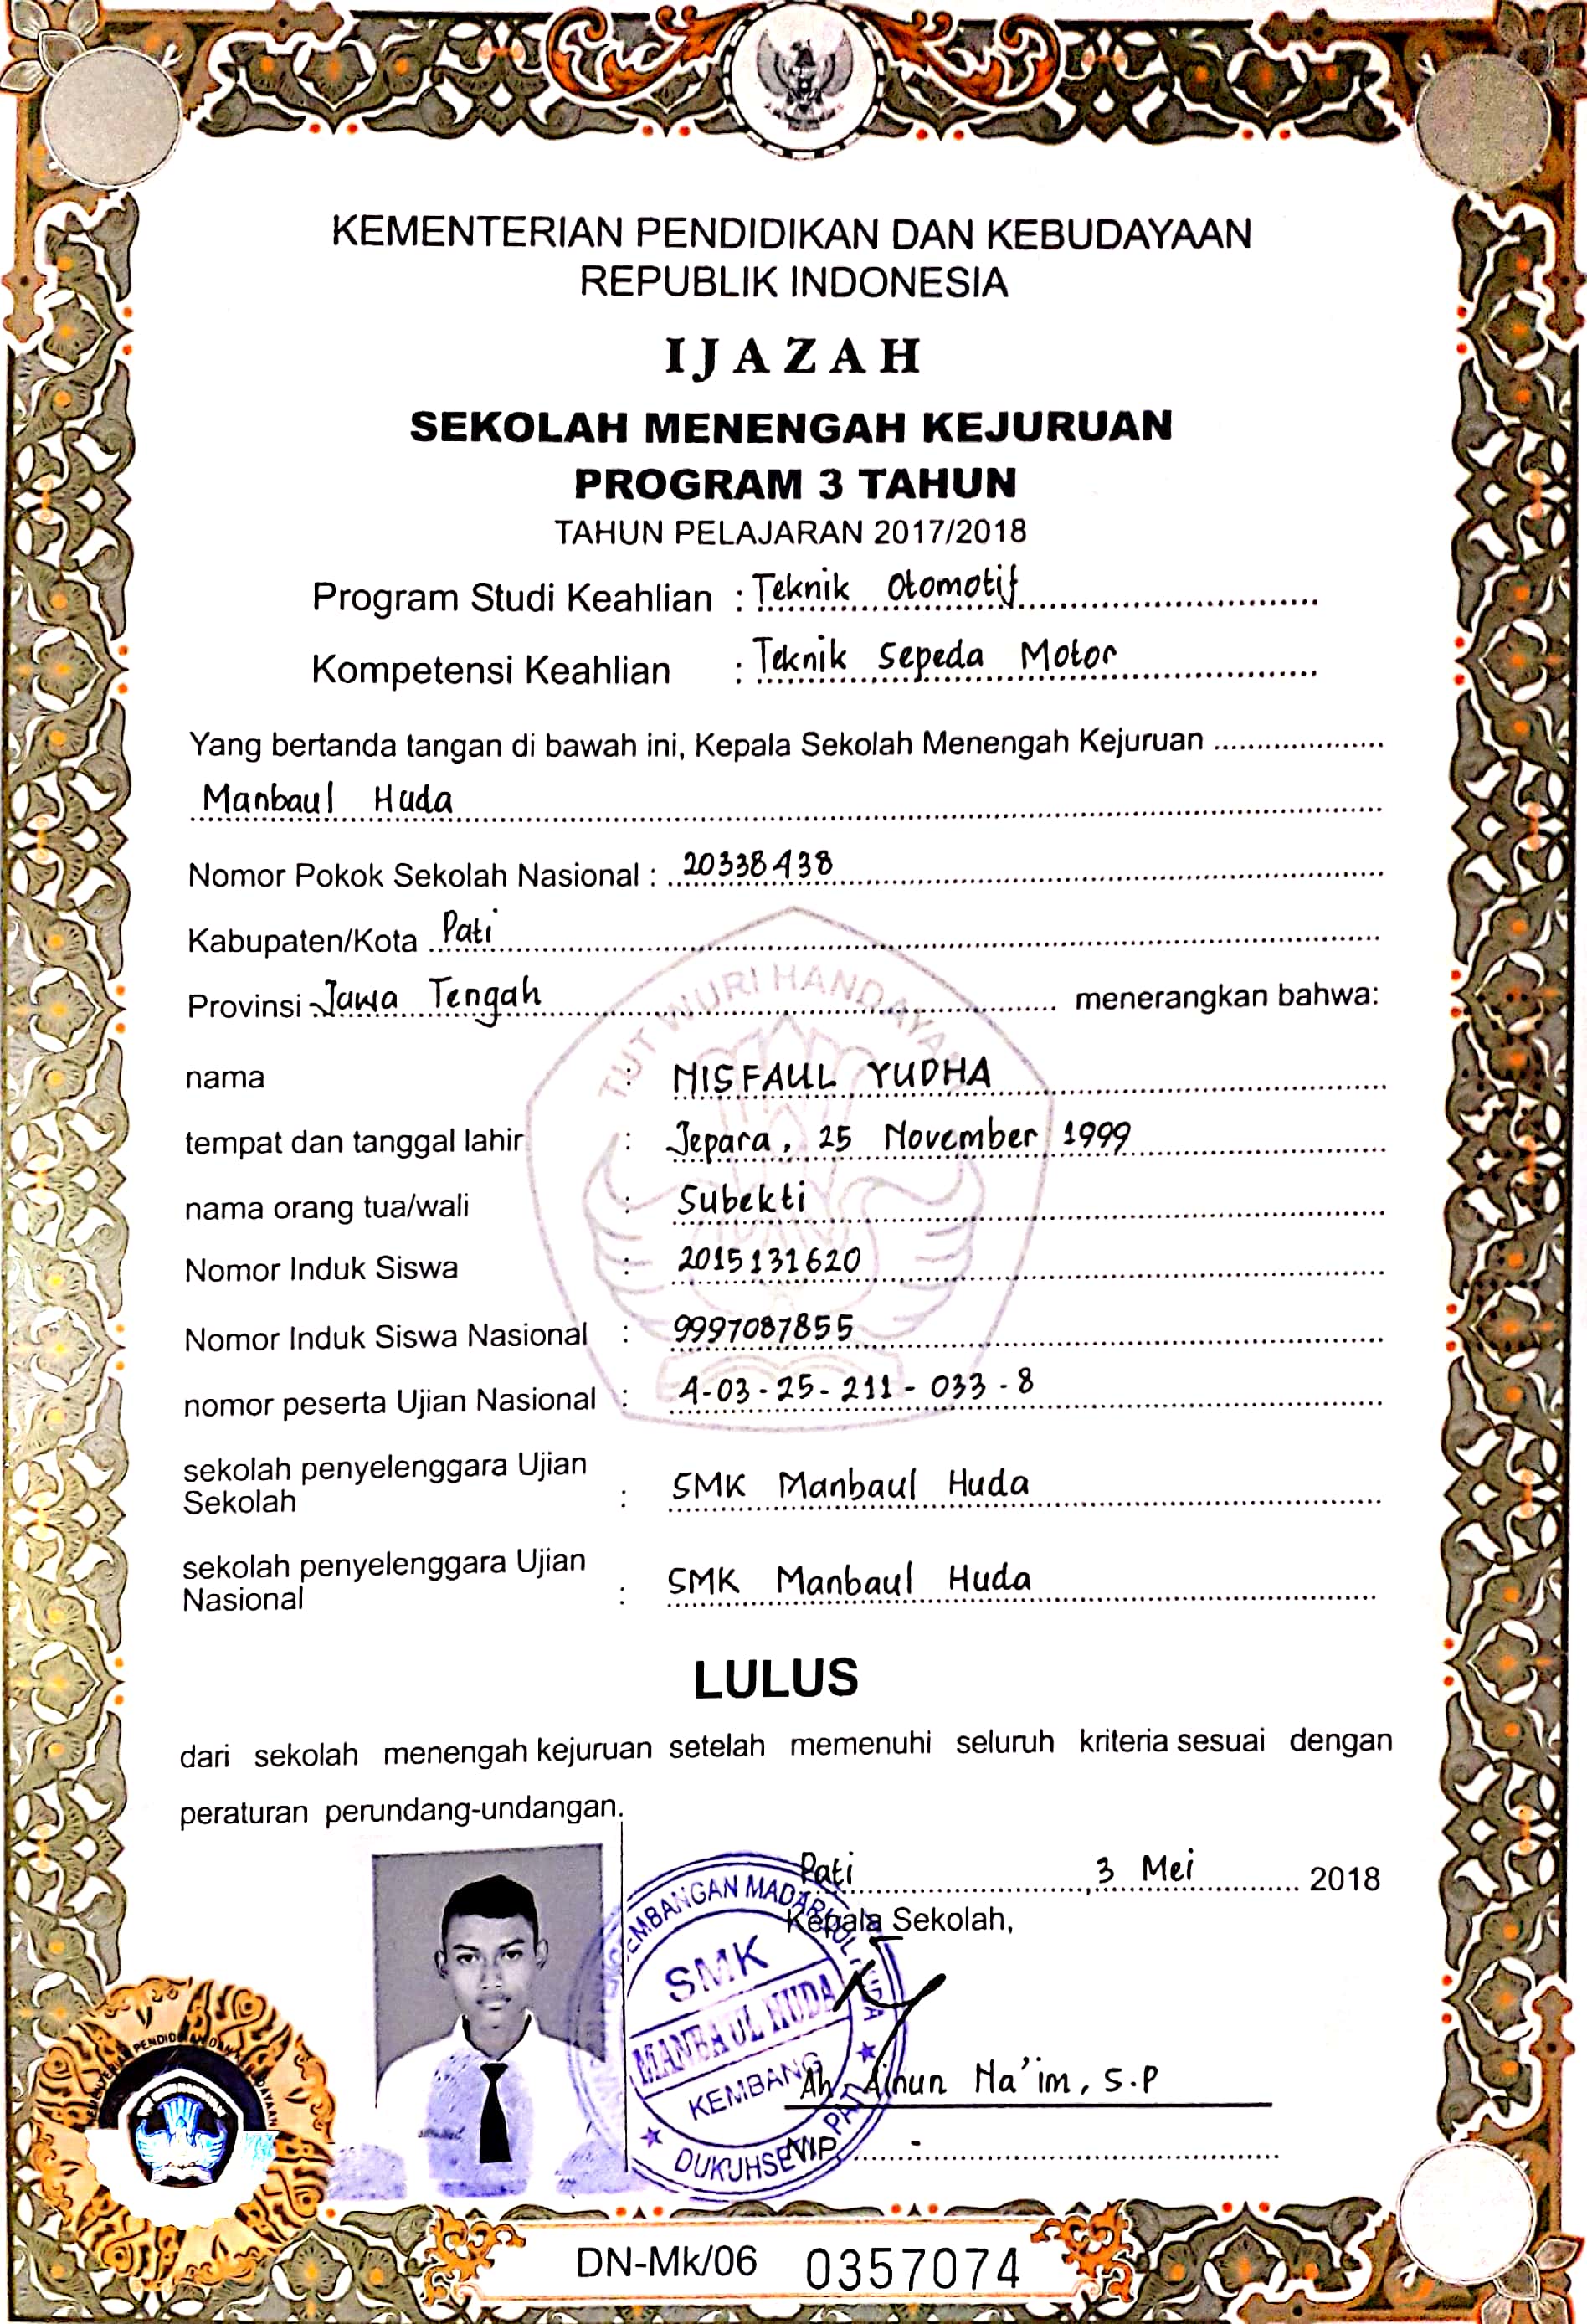 KEMENTERIAN PENDIDIKAN DAN KEBUDAYAAN
REPUBLIK INDONESIA
IJAZAH
SEKOLAH MENENGAH KEJURUAN
PROGRAM 3 TAHUN
TAHUN PELAJARAN 2017/2018
Program Studi Keahlian : Teknik Otomotif
Kompetensi Keahlian : Teknik Sepeda Motor
Yang bertanda tangan di bawah ini, Kepala Sekolah Menengah Kejuruan
Manbaul Huda
Nomor Pokok Sekolah Nasional : 20338438
Kabupaten/Kota Pati
Provinsi Jawa Tengah menerangkan bahwa:
TUT WURI HANDAYANI
nama : MISFAUL YUDHA
tempat dan tanggal lahir : Jepara, 25 November 1999
nama orang tua/wali : Subekti
Nomor Induk Siswa : 2015131620
Nomor Induk Siswa Nasional : 9997087855
nomor peserta Ujian Nasional : 4-03-25-211-033-8
sekolah penyelenggara Ujian
Sekolah : SMK Manbaul Huda
sekolah penyelenggara Ujian
Nasional : SMK Manbaul Huda
LULUS
dari sekolah menengah kejuruan setelah memenuhi seluruh kriteria sesuai dengan
peraturan perundang-undangan.
Pati, 3 Mei 2018
Kepala Sekolah,
SMK
MANBAUL HUDA
KEMBANG
Ah. Ainun Na'im, S.P
NIP. -
DN-Mk/06 0357074